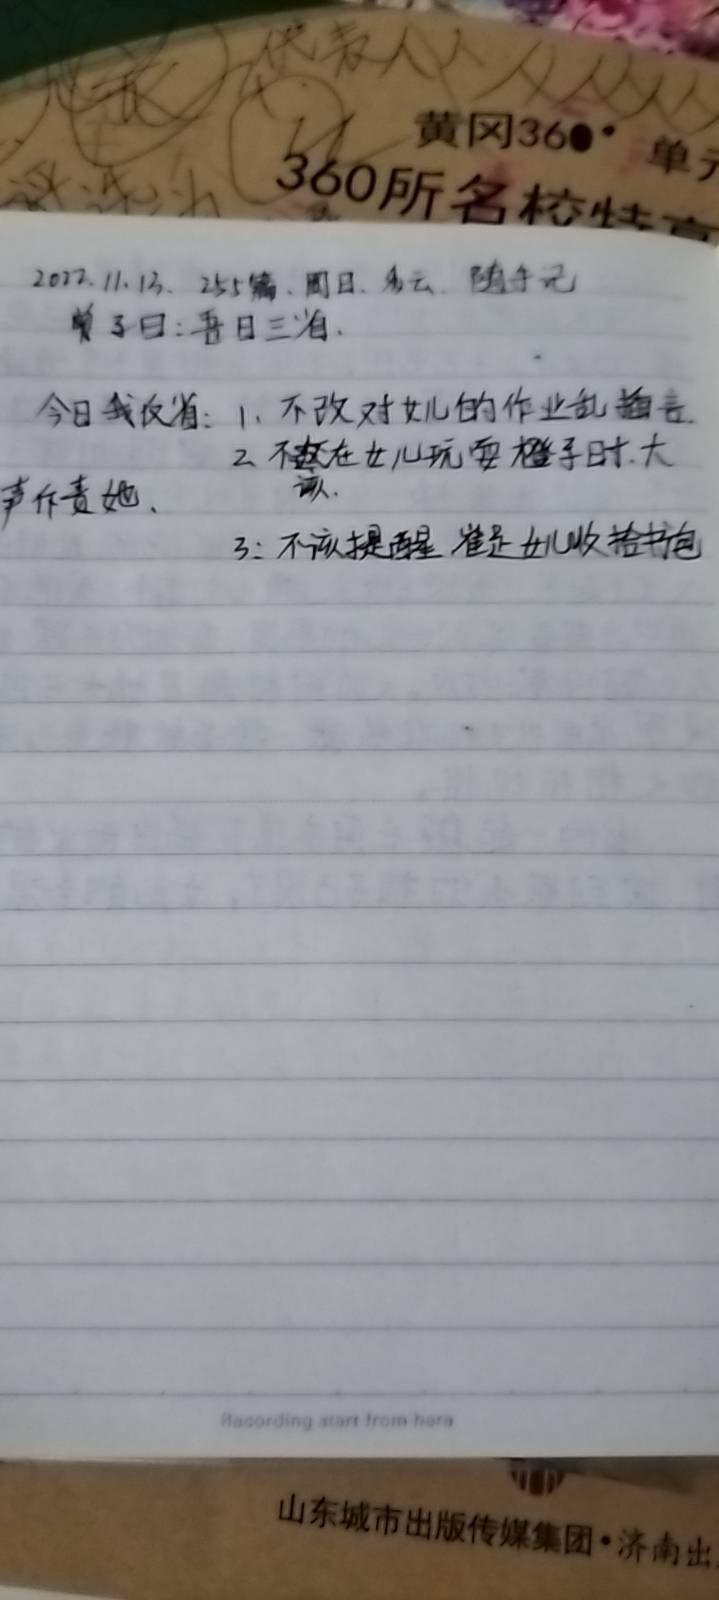 代表人人
黄冈360°
单元
360所名校特高
2022.11.13. 255篇.周日.多云. 随手记
曾子曰:吾日三省.
今日我反省: 1. 不改对女儿的作业乱指责.
2. 不在女儿玩耍橙子时.大
该.
声斥责她.
3: 不该提醒 女儿收拾书包
Recording start from here
山东城市出版传媒集团•济南出